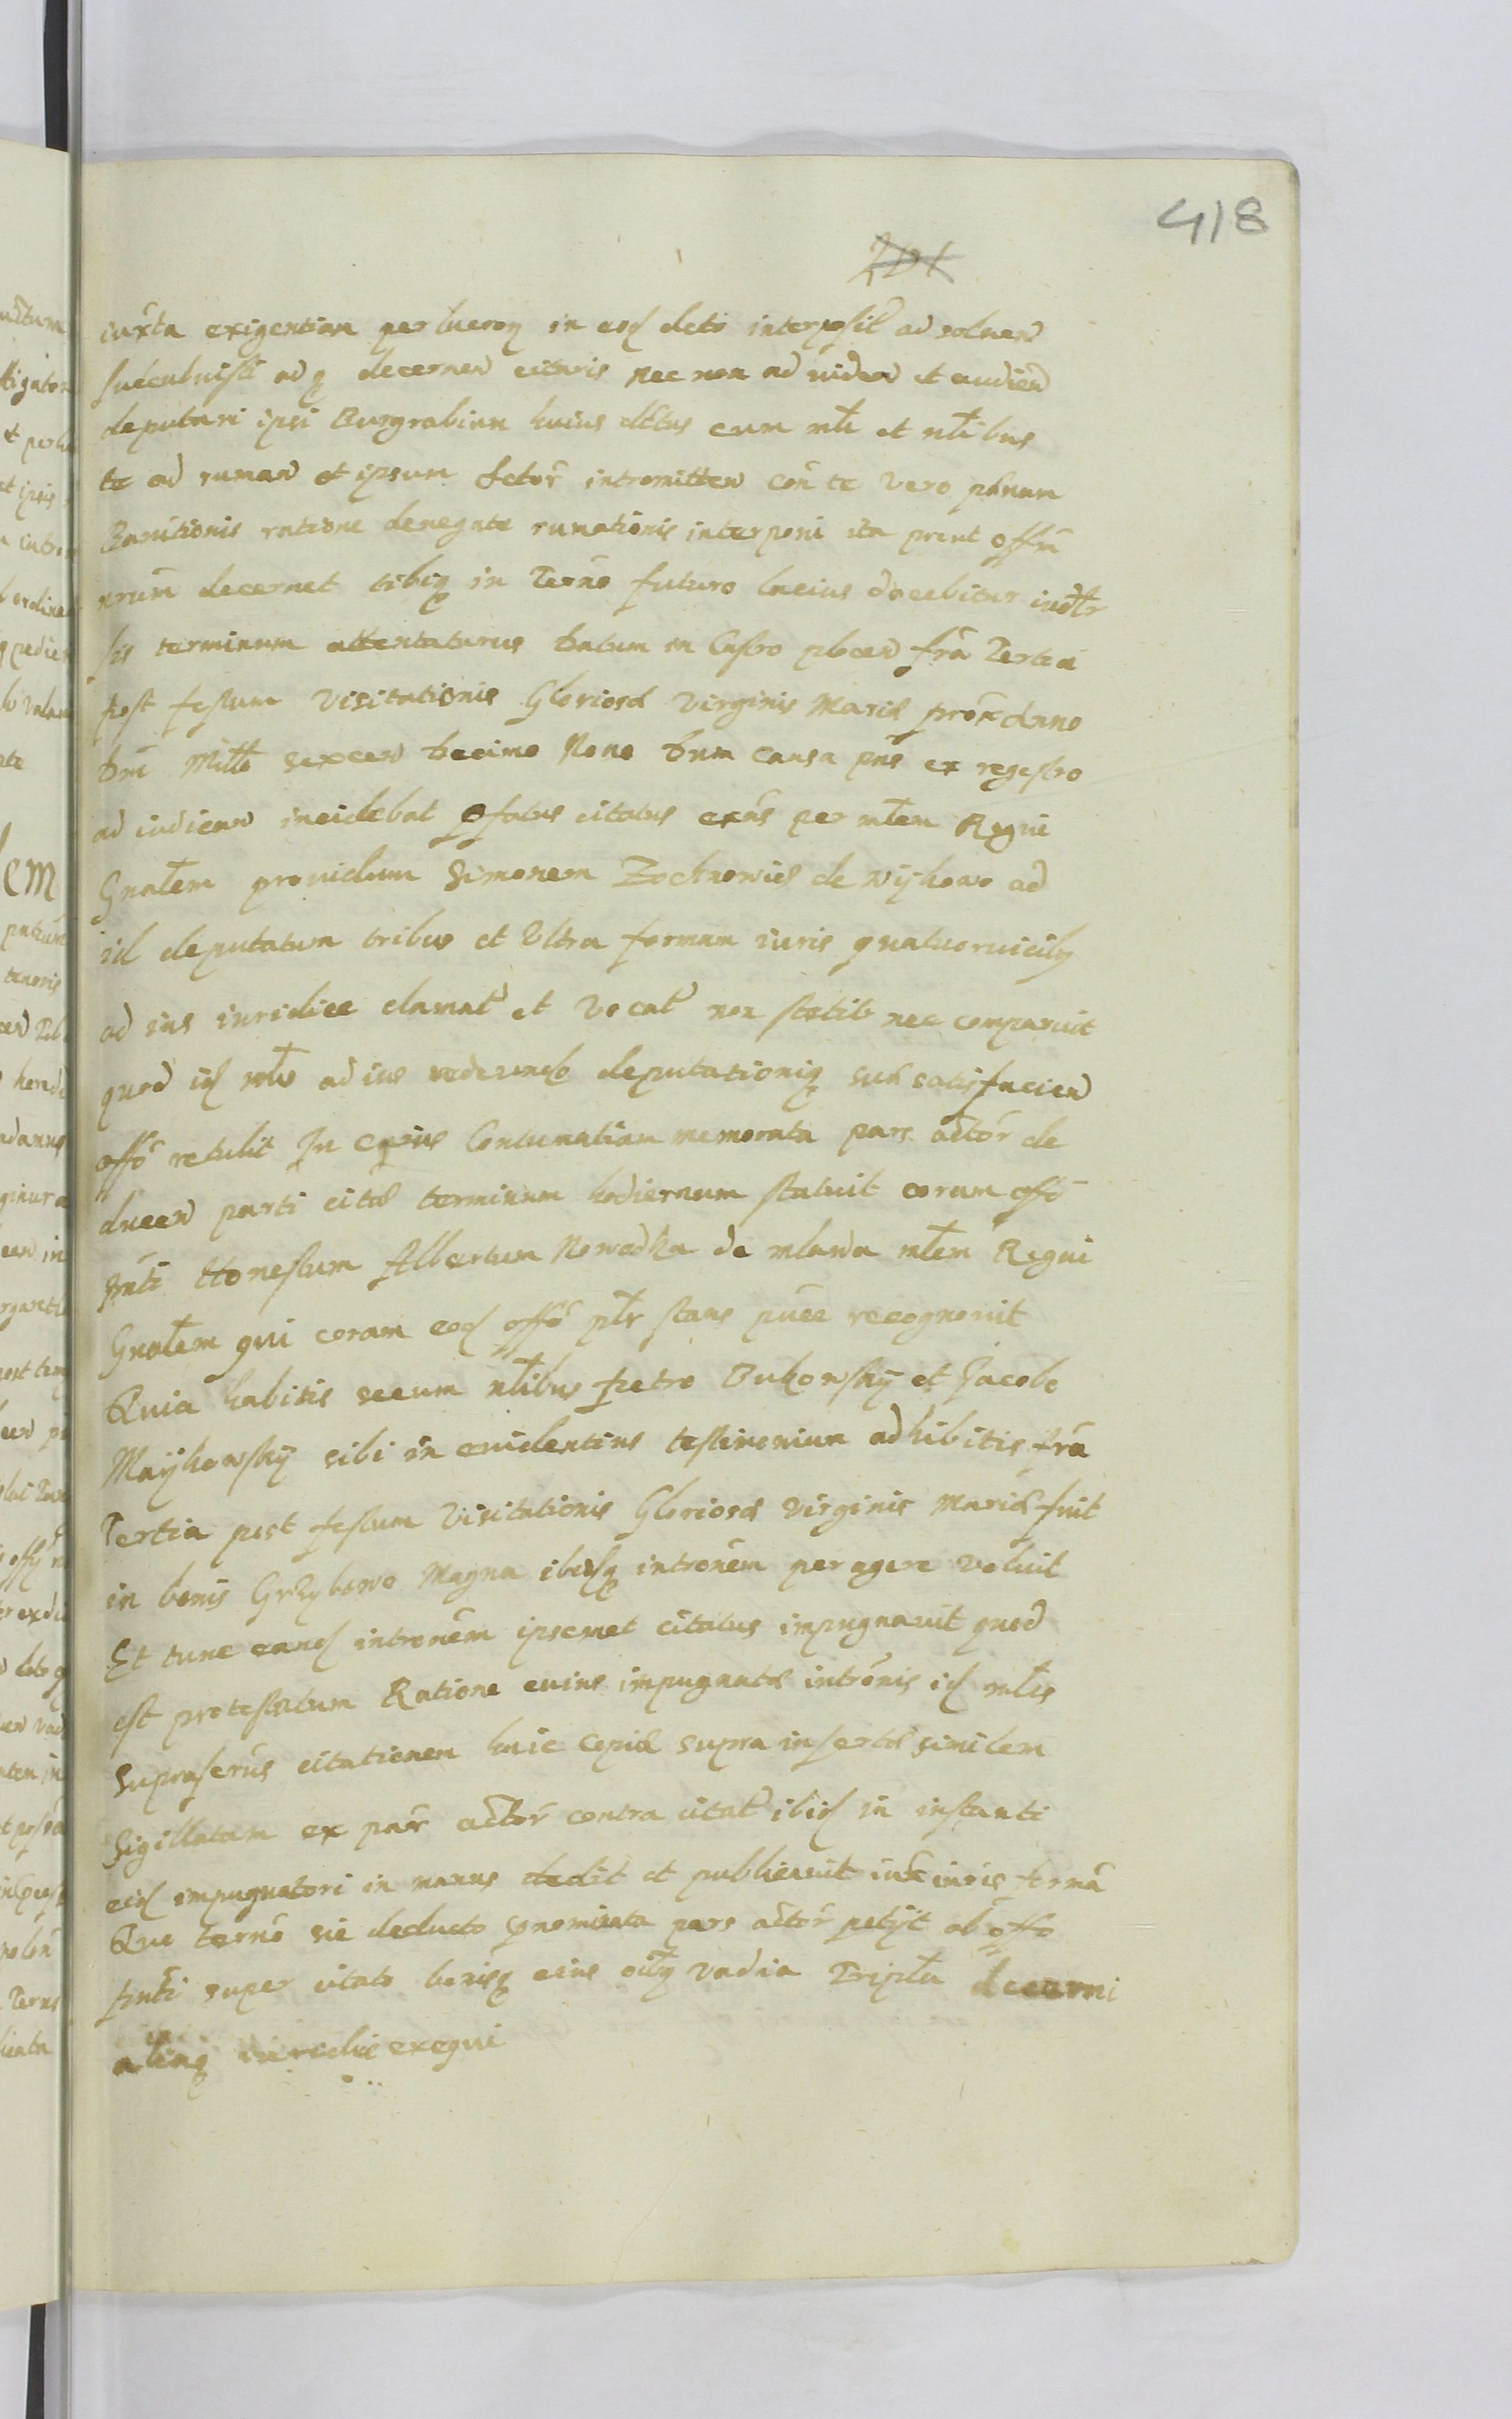 418
201
iuxta exigentiam per lucrorq in eod dcto interposit ad soluen
succubuisti ad q decernen citaris nec non ad viden et audien
deputari ipsi Burgrabium huius dttus cum mlt et nlibus
te ad ruman et ipsum actor intromitten Con te vero pænam
Banitionis ratione denegate rumationis interponi ita prout offm
nrum decernet tibiq in Termo futuro lacius docebitur iudlr
sis terminum attentaturus Datum in Castro plocen fra Tertia
post festum Visitationis Gloriosæ Virginis Mariæ prox Anno
Dni Millo sexcen Decimo Nono Dum causa pns ex regestro
ad iudican incidebat pfatus citatus exns per mlem Regni
Gnalem prouidum Simonem Zochnowicz de Wijkowo ad
id deputatum tribus et Vltra formam iuris quatuor vicibq
ad ius iuridice clamat et Vocat non stetit nec comparuit
quod id mls ad ius redeundo deputationiq suæ satisfacien
offo retulit In cuius Contumatiam memorata pars actor de
ducen parti citæ terminum hodiernum statuit coram offo
pnti Honestum Albertum Nowadka de mlawa mlem Regni
Gnalem qui coram eod offo plr stans puce recognouit
Quia habitis secum nlibus Petro Bukowsky et Jacobo
Maijkowskij sibi in euidentius testimonium adhibitis fra
Tertia post festum Visitationis Gloriosæ Virginis Mariæ fuit
in bonis Grzybowo Magna ibidq intronem peragere voluit
Et tunc eand intronem ipsemet citatus impugnauit quod
est protestatum Ratione cuius impugnatæ intronis id mlis
suprascrus citationem huic Copiæ supra insertæ similem
Sigillatam ex par actor contra citat ibid in instanti
eid impugnatori in manus dedit et publicauit iux iuris forma
Quo termo sic deducto pnominata pars actor petijt ab offo
pnti super citato bonisq eius oibq vadia Tripla decerni
aliaq iuridice exequi